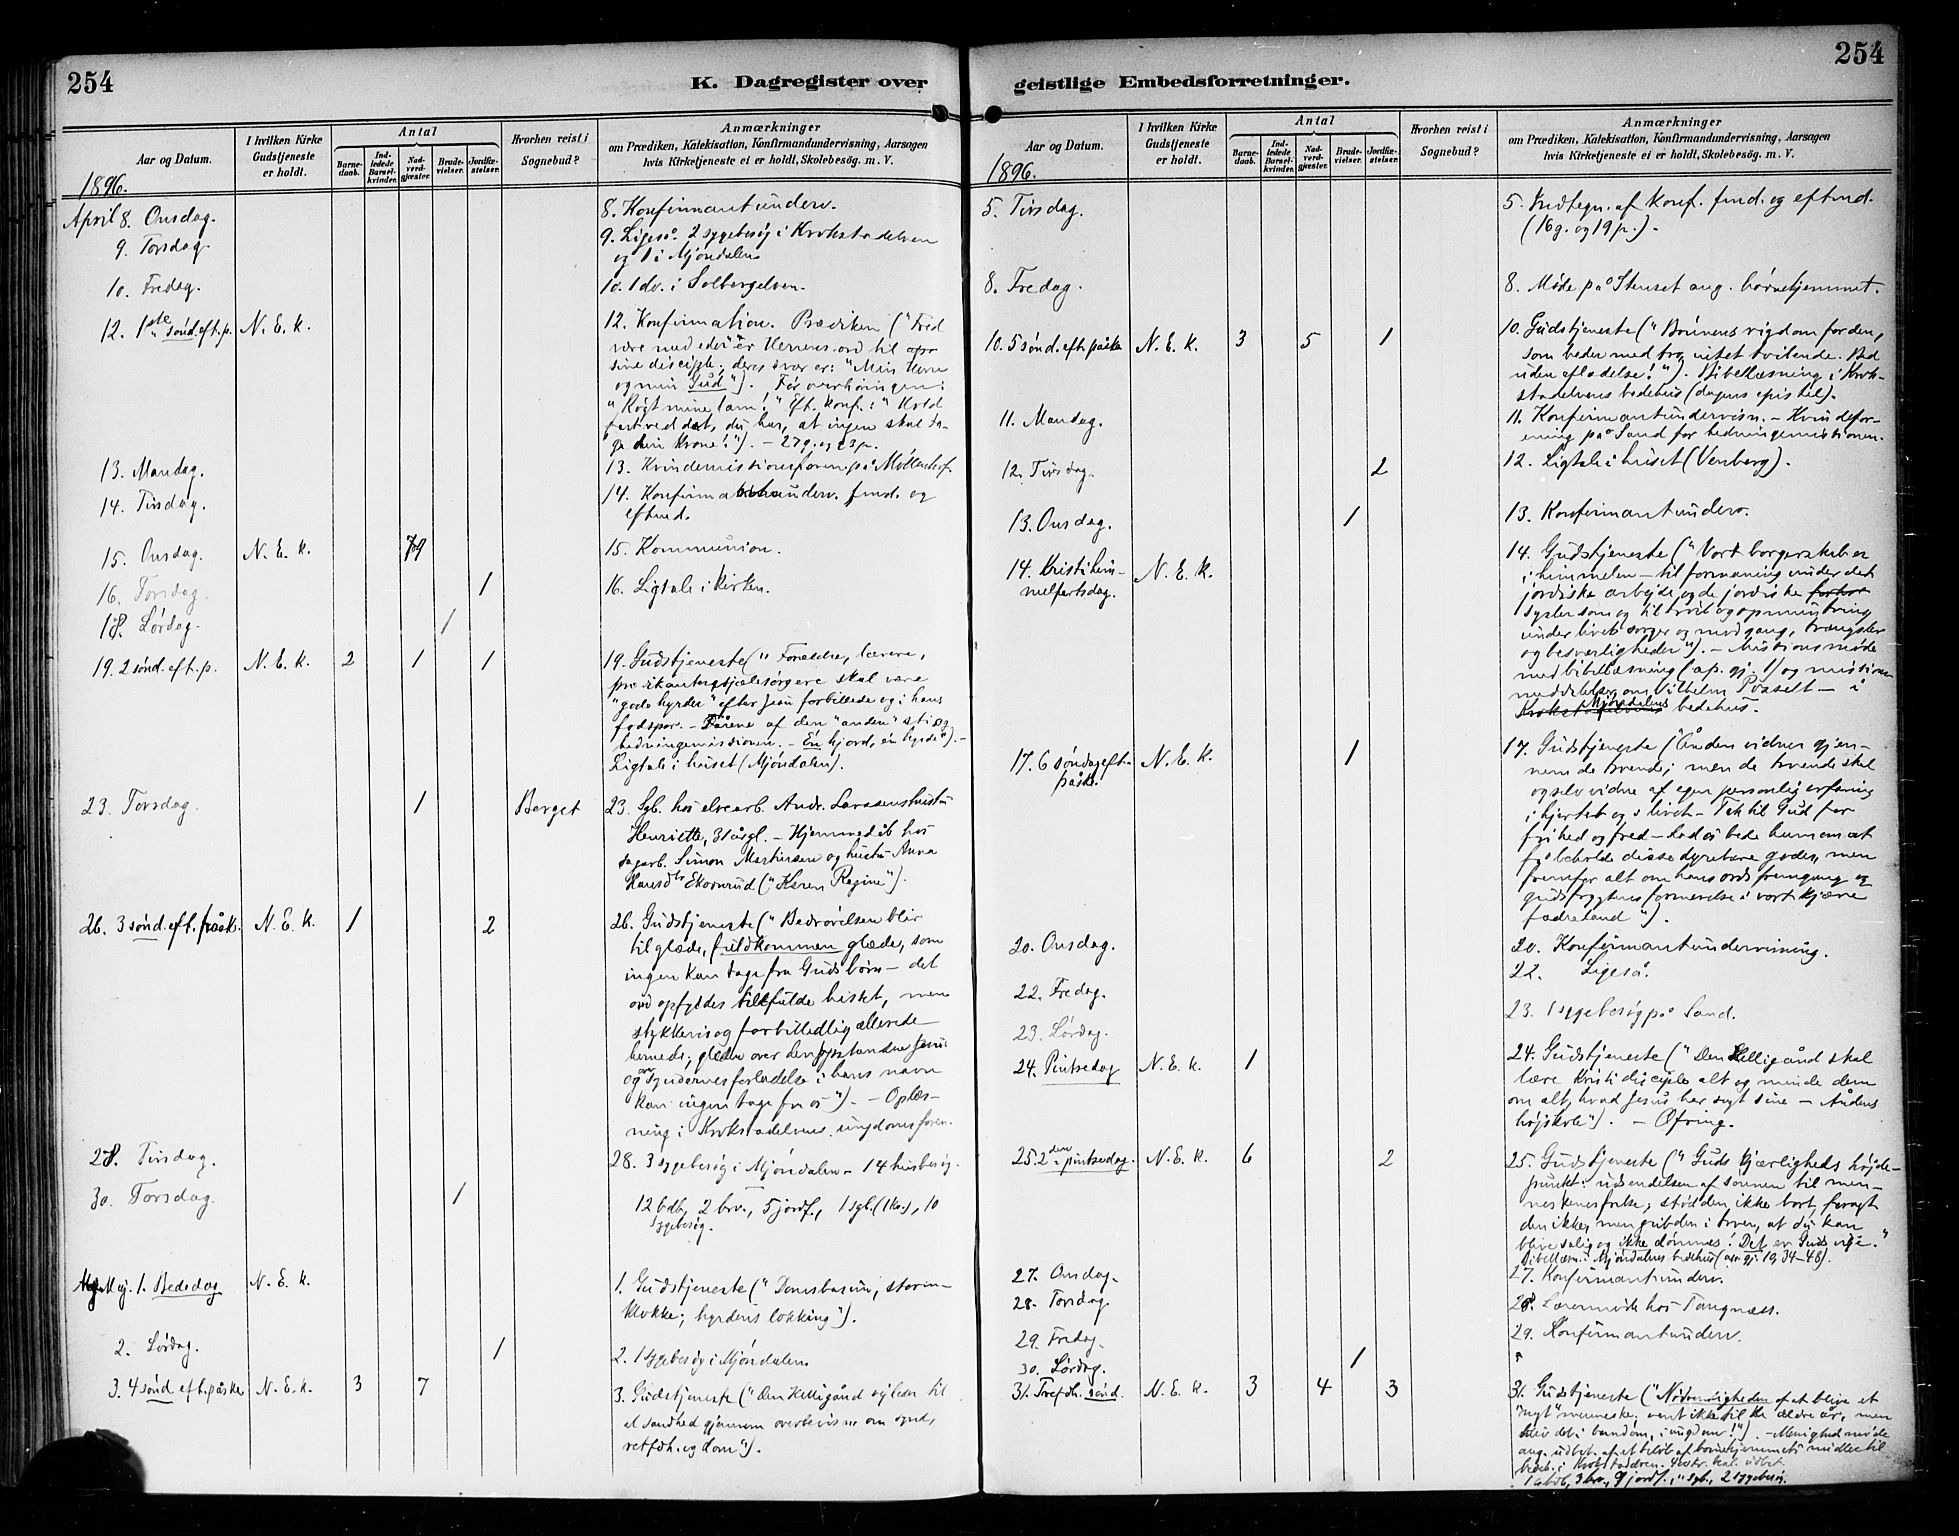 254
K. Dagregister over
Aar og Datum.
I hvilken Kirke Gudstjeneste er holdt.
Antal
Barne-daab.
Ind-ledede Barsel-kvinder.
Nad-verd-gjæster.
Brude-vielser.
Jordfæ-stelser.
Hvorhen reist i Sognebud?
Anmærkninger
om Prædiken, Katekisation, Konfirmandundervisning, Aarsagen
hvis Kirketjeneste ei er holdt, Skolebesög. m. V.
1896.
April 8. Onsdag. 8. Konfirmantunderv.
9. Torsdag. 9. Ligeså. 2 sygebesög i Krokstadelven
og 1 i Mjöndalen
10. Fredag. 10. 1 do. i Solbergelven.
12. 1ste sönd. eft. p. N. E. k. 12. Konfirmation. Prædiken ("Fred
være med eder" er Herrens ord til
sine disciple; deres svar er: "Min Herre
og min Gud"). Før overhöringen:
"Rögt mine lam!" Eft. konf.: "Hold
fast ved det, du har, at ingen skal ta-
ge din krone!"). - 27 g. og 23 p.
13. Mandag. 13. Kvindemissionsforen. på Möllenhof.
14. Tirsdag. 14. Konfirmantunderv. fmd. og
eftmd.
15. Onsdag. N. E. k. 79 15. Kommunion.
16. Torsdag. 1 16. Ligtale i kirken.
18. Lördag. 1
19. 2 sönd. eft. p. N. E. k. 2 1 1 19. Gudstjeneste ("Forældre, lærere,
prædikanter, sjælesörgere skal være
"gode hyrder" efter Jesu forbillede og i hans
fodspor. - Fårene af den "anden" sti og
hedningemissionen. - Én hjord, én hyrde"). -
Ligtale i huset (Mjöndalen).
23. Torsdag. 1 Berget 23. Sgb. hos elvearb. Andr. Larssens hustru
Henriette, 31 årgl. - Hjemmedåb hos
sagarb. Simon Martinsen og hustru Anna
Hansdtr Ekornrud ("Karen Regine").
26. 3 sönd. eft. påsk. N. E. k. 1 2 26. Gudstjeneste ("Bedrövelsen blir
til glæde, fuldkommen glæde, som
ingen kan tage fra Guds börn - det
ord opfyldes tilfulde hisset, men
stykkevis og forbilledlig allerede
hernede; glæden over den opstandne Jesus
og over syndernes forladelse i hans navn
kan ingen tage fra os"). - Oplæs-
ning i Krokstadelvens ungdomsforen.
28. Tirsdag. 28. 3 sygebesög i Mjöndalen - 14 husbesög.
30. Torsdag. 1 12 bdb, 2 brv., 5 jordf., 1 sgb. (1 ko.), 10
sygebesög.
Mej. 1. Bededag N. E. k. 1. Gudstjeneste ("Domsbasun, storm-
klokke; hyrdens lokking").
2. Lördag. 1 2. 1 sygebesög i Mjöndalen.
3. 4 sönd eft. påske N. E. k. 3 7 3. Gudstjeneste ("Den Helligånd vejleder til
al sandhed gjennem overbevisn. om synd,
retfdh. og dom").
254
geistlige Embedsforretninger.
Aar og Datum.
I hvilken Kirke Gudstjeneste er holdt.
Antal
Barne-daab.
Ind-ledede Barsel-kvinder.
Nad-verd-gjæster.
Brude-vielser.
Jordfæ-stelser.
Hvorhen reist i Sognebud?
Anmærkninger
om Prædiken, Katekisation, Konfirmandundervisning, Aarsagen
hvis Kirketjeneste ei er holdt, Skolebesög. m. V.
1896.
5. Tirsdag. 5. Indtegn. af konf. fmd. og eftmd.
(16 g. og 19 p.).
8. Fredag. 8. Møde på Stenset ang. börnehjemmet.
10. 5 sönd. eft. påske N. E. k. 3 5 1 10. Gudstjeneste ("Bönnens rigdom for den,
som beder med tro, intet tvilende. Bed
uden afladelse!"). Bibellæsning i Krok-
stadelvens bedehus (dagens epistel).
11. Mandag. 11. Konfirmantundervisn. - Kvindefor-
ening på Sand for hedningemissionen.
12. Tirsdag. 2 12. Ligtale i huset (Verberg).
13. Onsdag. 1 13. Konfirmantunderv.
14. Kristi him-
melfartsdag. N. E. k. 14. Gudstjeneste ("Vort borgerskab er
i himmelen - til formaning under det
jordiske arbejde og de jordiske
sysler som og til tröst og opmuntring
under livets sorger og modgang, trængsler
og besværligheder"). - Missionsmöde
med bibellæsning (ap. gj. 1) og missions-
meddelelser om Vilhelm Posselt - i
Mjöndalens bedehus.
17. 6 söndag eft.
påske. N. E. k. 1 17. Gudstjeneste ("Ånden vidner gjen-
nem de troende; men de troende skal
også vidne af egen personlig erfaring
i hjertet og i livet - Tak til Gud for
frihed og fred - Lad os bede ham om at
få beholde disse dyrebare goder, men
fremfor alt om hans ords fremgang og
gudsfrygtens formerelse i vort kjære
fædreland").
20. Onsdag. 20. Konfirmantundervisning.
22. Fredag. 22. Ligeså.
23. Lördag. 23. 1 sygebesög på Sand.
24. Pintsedag N. E. k. 1 24. Gudstjeneste ("Den Helligånd skal
lære Kristi disciple alt og minde dem
om alt, hvad Jesus har sagt sine - Åndens
højskole"). - Ofring.
25. 2den pintsedag. N. E. k. 6 2 25. Gudstjeneste ("Guds kjærligheds højde-
punkt: udsendelsen af sönnen til men-
neskenes frelse; stöd den ikke bort, foragt
den ikke, men grib den i troen, at du kan
blive salig og ikke dömmes! Det er Guds vilje."
Bibellæsn. i Mjöndalens bedehus (ap. gj. 10, 34-48).
27. Onsdag. 27. Konfirmantunderv.
28. Torsdag. 28. Læremöde hos Tangnæss.
29. Fredag. 29. Konfirmantunderv.
30. Lördag. 1
31. Trefdh. sönd. N. E. k. 3 4 3 31. Gudstjeneste ("Nödvendigheden af at blive et
"nyt" menneske; vent ikke til de ældre år, men
blev det i barndom, i ungdom!"). - Menighedsmöde
ang. udbet. af et beløb af börnehjemmets midler til
bedeh. i Krokstadelven.
16 bdb, 3 brv., 9 jordf., " sgb., 2 sygebesög.